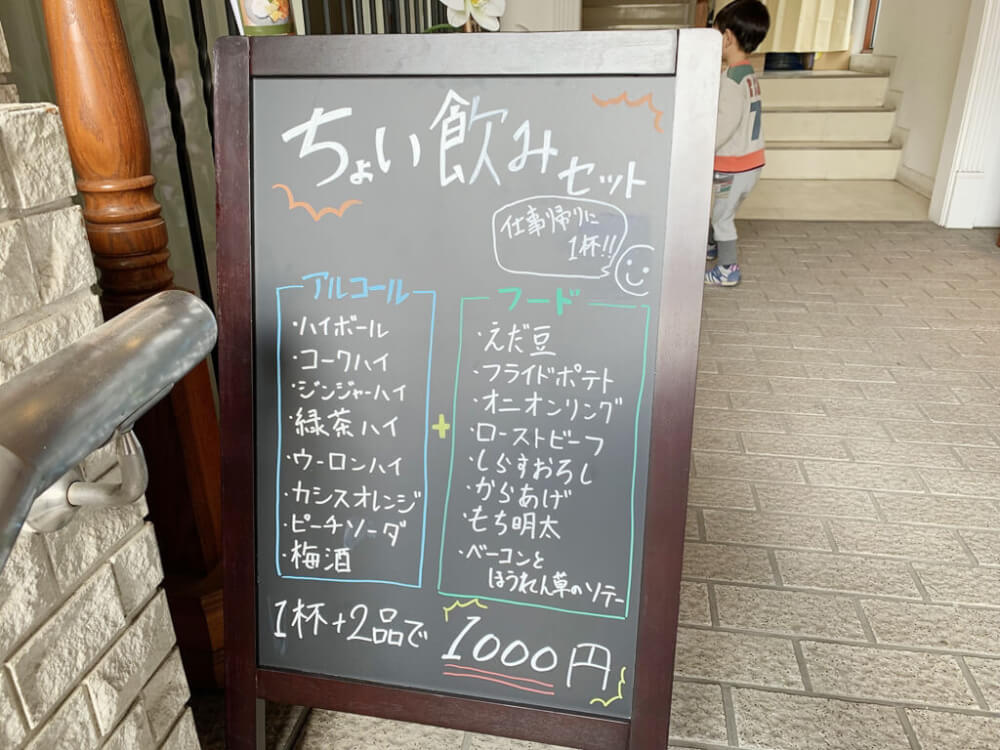 ちょい飲みセット
仕事帰りに
1杯!!
アルコール
・ハイボール
・コークハイ
・ジンジャーハイ
・緑茶ハイ
・ウーロンハイ
・カシスオレンジ
・ピーチソーダ
・梅酒
+
フード
・えだ豆
・フライドポテト
・オニオンリング
・ローストビーフ
・しらすおろし
・からあげ
・もち明太
・ベーコンと
ほうれん草のソテー
1杯+2品で 1000円
7